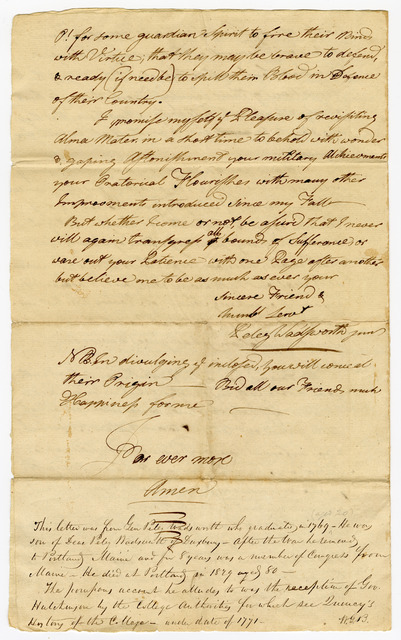 O! for some guardian Spirit to fire their Minds
with Virtue, that they may be brave to defend,
& ready (if need be) to spill their Blood in Defence
of their Country.
I promise myself ye Pleasure of revisiting
Alma Mater in a short time to behold with wonder
& gaping Astonishment your military Atchievments
your Oratorical Flourishes with many other
Improvments introduced since my Fall
But whether I come or not be assured that I never
will again transgress all bounds of Sufferance or
ware out your Patience with one Page after another
but believe me to be as much as ever your
Sincere Friend &
Humbl Servt
Peleg Wadsworth junr
NB In divulging ye inclosed, you will conceal
their Origin Bid all our Friends much
Happiness for me
For ever more
Amen
This letter was from Gen Peleg Wadsworth who graduated in 1769 - He was
son of Deac Peleg Wadsworth of Duxbury - After the war he removed
to Portland, Maine and for 8 years was a member of Congress from
Maine - He died at Portland in 1829 aged 80 -
The pompous account he alludes to was the reception of Gov.
Hutchinson by the College Authorities for which see Quincy's
History of the College - under date of 1771 -